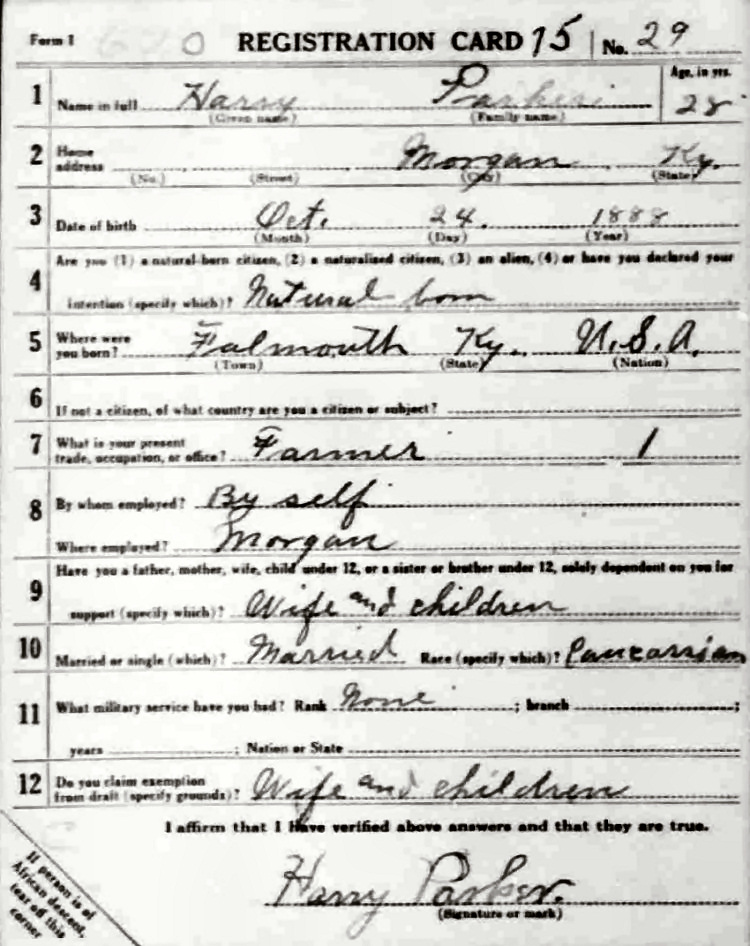 Form 1 REGISTRATION CARD 75 No. 29
1 Name in full Harry Parker Age, in yrs. 28
(Given name) (Family name)
2 Home address Morgan Ky.
(No.) (Street) (City) (State)
3 Date of birth Oct. 24. 1888
(Month) (Day) (Year)
4 Are you (1) a natural-born citizen, (2) a naturalized citizen, (3) an alien, (4) or have you declared your
intention (specify which)? Natural born
5 Where were you born? Falmouth Ky. U.S.A.
(Town) (State) (Nation)
6 If not a citizen, of what country are you a citizen or subject?
7 What is your present trade, occupation, or office? Farmer 1
8 By whom employed? By self
Where employed? Morgan
9 Have you a father, mother, wife, child under 12, or a sister or brother under 12, solely dependent on you for
support (specify which)? Wife and children
10 Married or single (which)? Married Race (specify which)? Caucassian
11 What military service have you had? Rank None ; branch ;
years ; Nation or State
12 Do you claim exemption from draft (specify grounds)? Wife and children
I affirm that I have verified above answers and that they are true.
Harry Parker.
(Signature or mark)
If person is of
African descent,
tear off this
corner